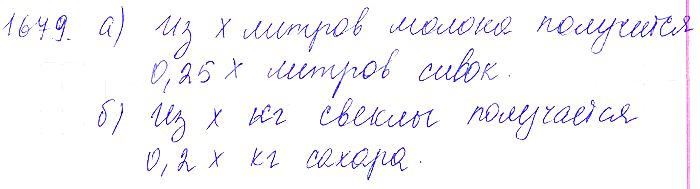 1679. а) Из х литров молока получится
0,25 х литров сливок.
б) Из х кг свеклы получается
0,2 х кг сахара.